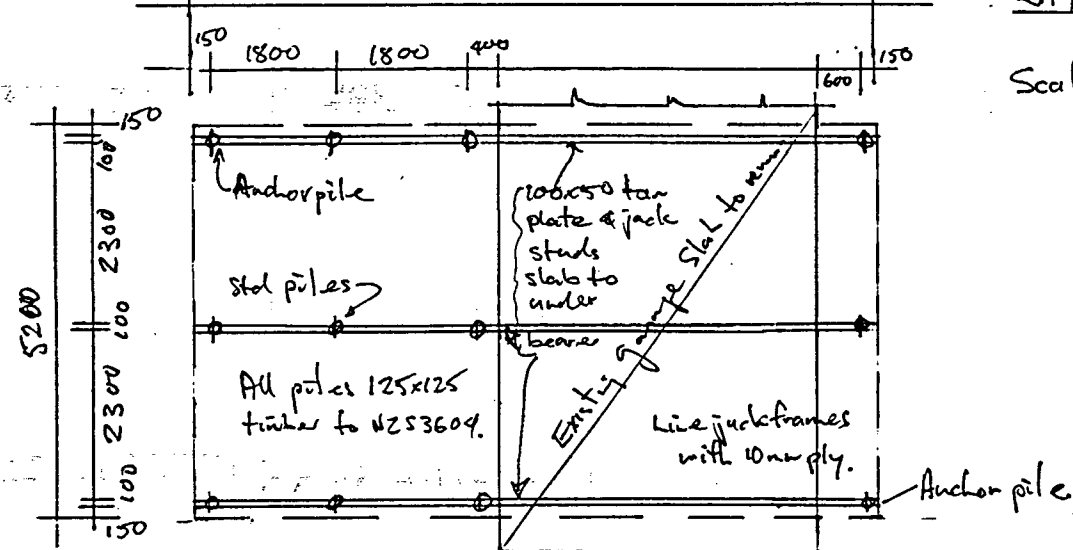 Scal
150
1800
1800
400
600
150
150
100
2300
100
2300
100
150
5200
Anchor pile
100x50 tan
plate & jack
studs
slab to
under
bearer
Std piles
All piles 125x125
timber to NZS3604.
Existing garage Slab to
Line jack frames
with 10mm ply.
Anchor pile